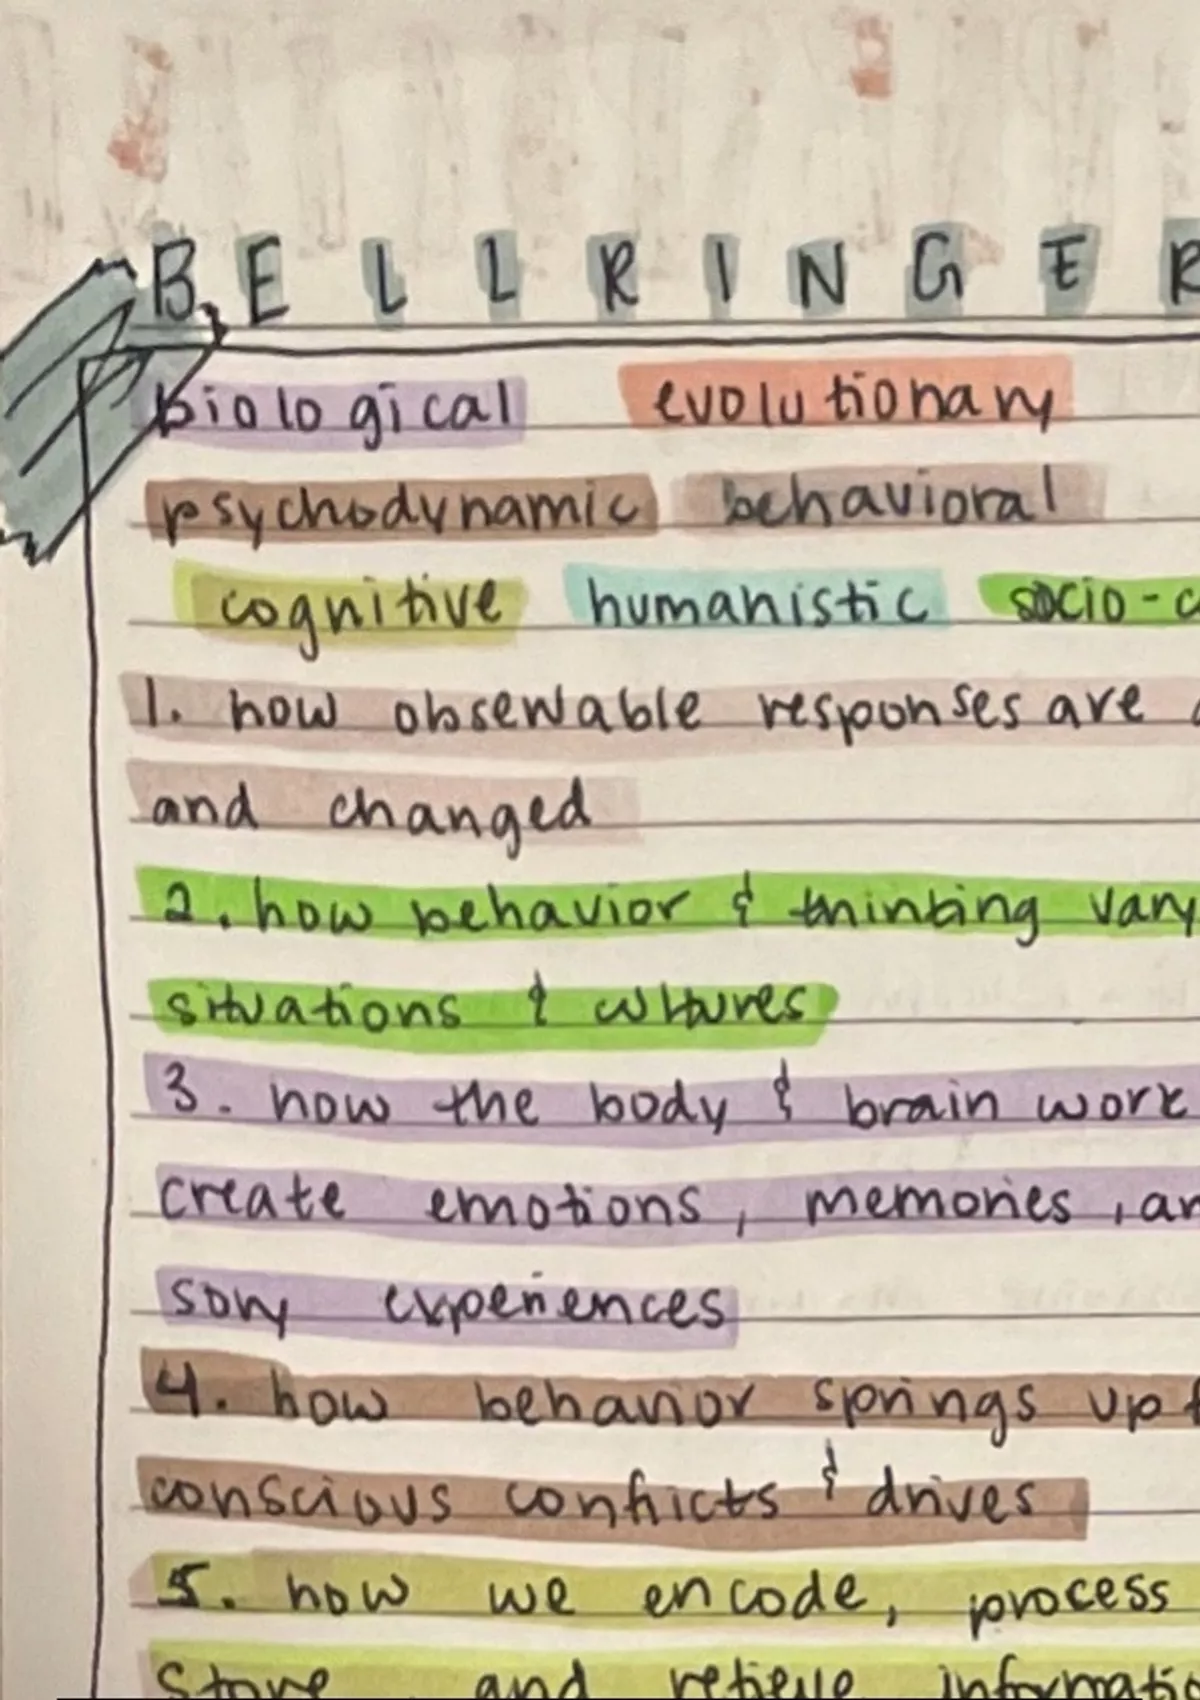 BELLRINGER
biological evolutionary
psychodynamic behavioral
cognitive humanistic socio-c
1. how observable responses are
and changed
2. how behavior & thinking vary
situations & cultures
3. how the body & brain work
create emotions, memories, an
sory experiences
4. how behavior springs up f
conscious conflicts & drives
5. how we encode, process
store and retieve informatio